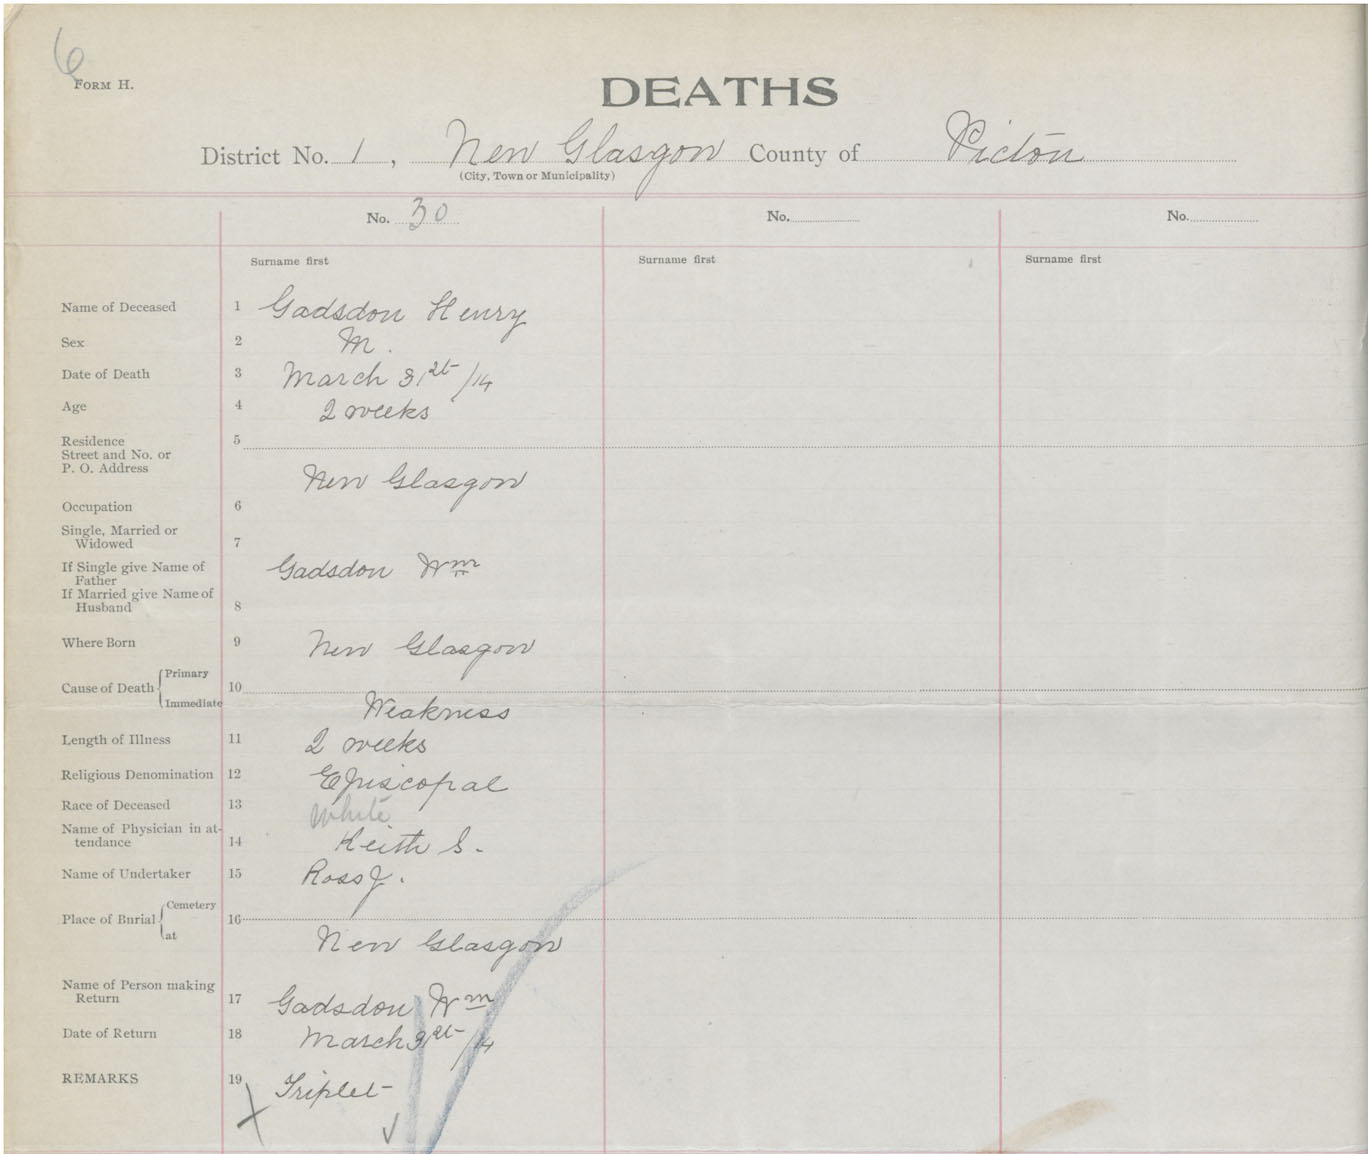 6
FORM H.
DEATHS
District No. 1, New Glasgow County of Pictou
(City, Town or Municipality)
No. 30 No. No.
Surname first Surname first Surname first
Name of Deceased 1 Gadsdon Henry
Sex 2 M.
Date of Death 3 March 31st/14
Age 4 2 weeks
Residence 5
Street and No. or
P. O. Address
New Glasgow
Occupation 6
Single, Married or
Widowed 7
If Single give Name of
Father
Gadsdon Wm
If Married give Name of
Husband 8
Where Born 9 New Glasgow
Cause of Death Primary 10
Immediate Weakness
Length of Illness 11 2 weeks
Religious Denomination 12 Episcopal
Race of Deceased 13 White
Name of Physician in at-
tendance 14 Keith S.
Name of Undertaker 15 Ross J.
Place of Burial Cemetery 16
at New Glasgow
Name of Person making
Return 17 Gadsdon Wm
Date of Return 18 March 31st/14
REMARKS 19 Triplet